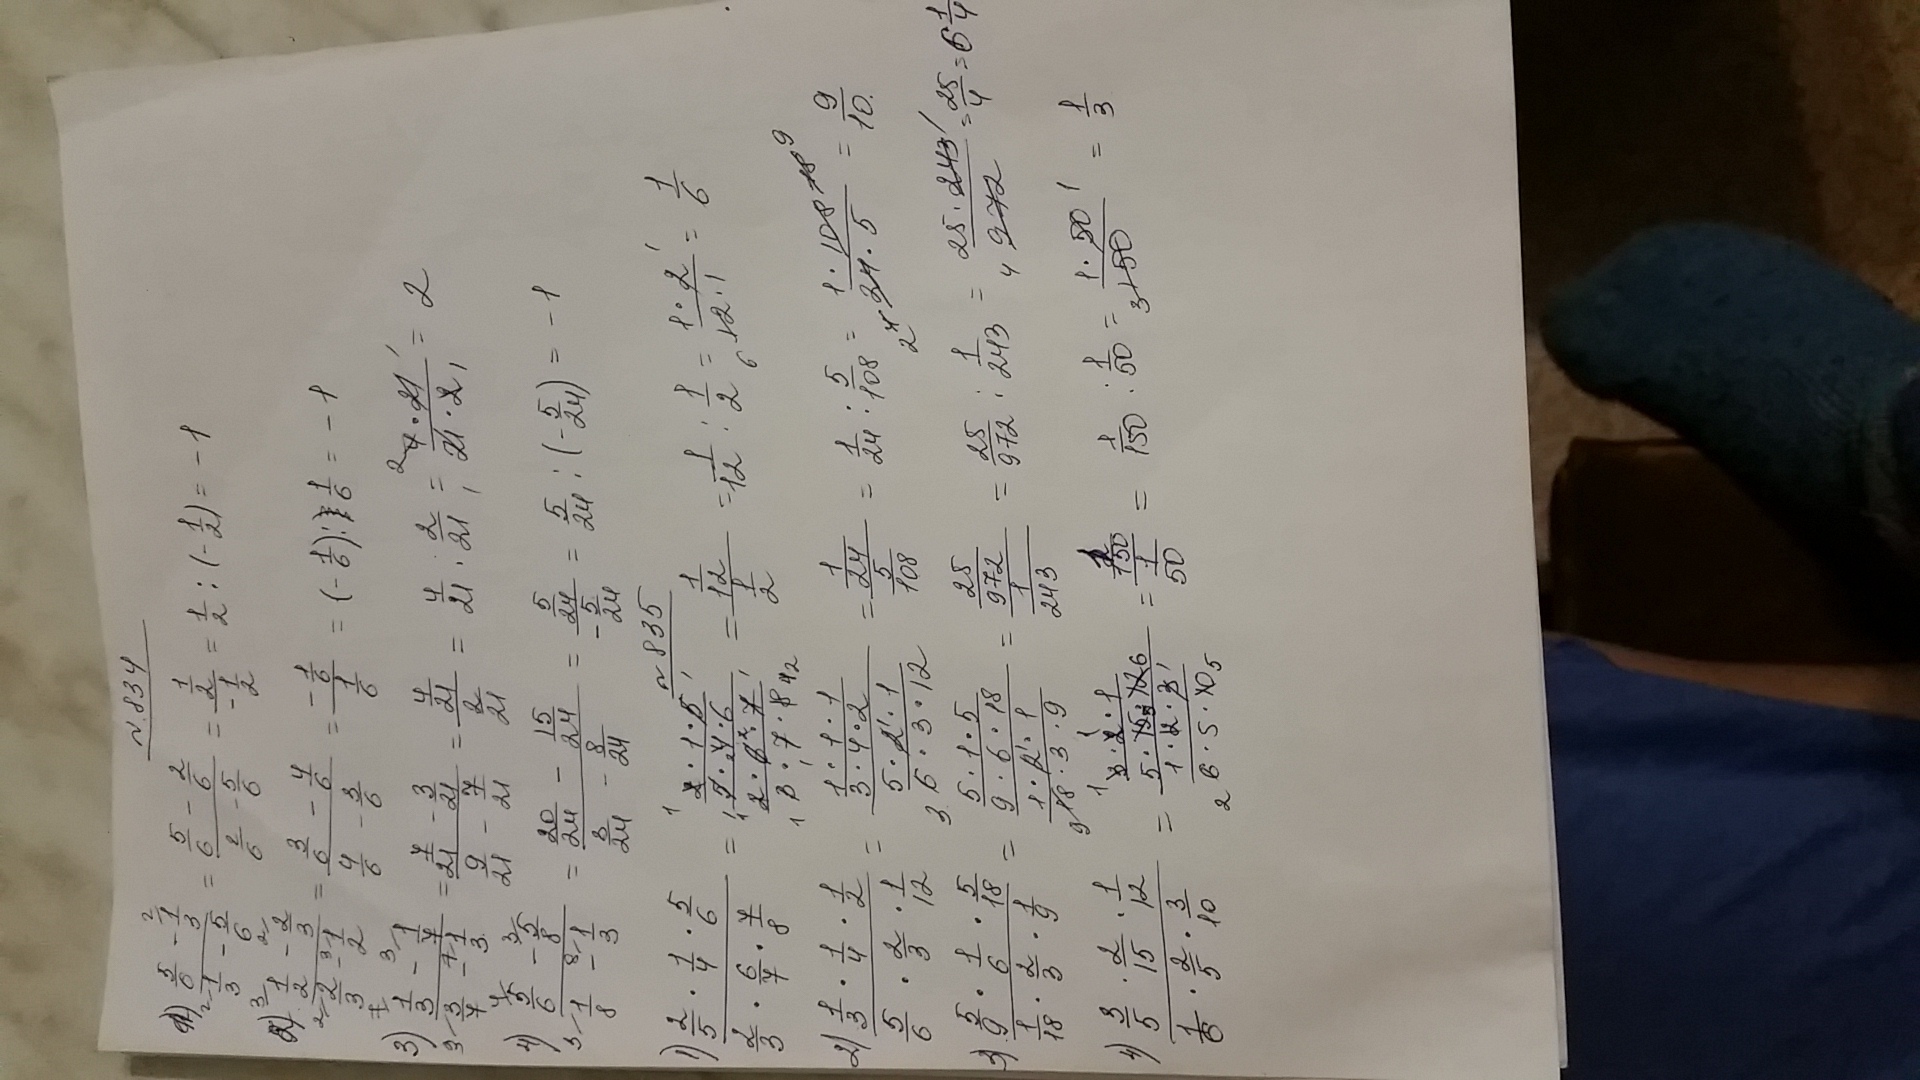 №834
1) (5/6 - 1/3)/(1/3 - 5/6) = (5/6 - 2/6)/(2/6 - 5/6) = (1/2)/(-1/2) = 1/2 : (-1/2) = -1
2) (1/2 - 2/3)/(2/3 - 1/2) = (3/6 - 4/6)/(4/6 - 3/6) = (-1/6)/(1/6) = (-1/6) : 1/6 = -1
3) (1/3 - 1/7)/(3/7 - 1/3) = (7/21 - 3/21)/(9/21 - 7/21) = (4/21)/(2/21) = 4/21 : 2/21 = (4·21)/(21·2) = 2
4) (5/6 - 5/8)/(1/8 - 1/3) = (20/24 - 15/24)/(3/24 - 8/24) = (5/24)/(-5/24) = 5/24 : (-5/24) = -1
№835
1) (2/5 · 1/4 · 5/6)/(2/3 · 6/7 · 7/8) = = (1/12)/(1/2) = 1/12 : 1/2 = (1·2)/(12·1) = 1/6
2) (1/3 · 1/4 · 1/2)/(5/6 · 2/3 · 1/12) = ((1·1·1)/(3·4·2))/((5·2·1)/(6·3·12)) = (1/24)/(5/108) = 1/24 : 5/108 = (1·108)/(24·5) = 9/10.
3) (5/9 · 1/6 · 5/18)/(1/18 · 2/3 · 1/9) = ((5·1·5)/(9·6·18))/((1·2·1)/(18·3·9)) = (25/972)/(1/243) = 25/972 : 1/243 = (25·243)/972 = 25/4 = 6 1/4
4) (3/5 · 2/15 · 1/12)/(1/6 · 2/5 · 3/10) = ((3·2·1)/(5·15·12))/((1·2·3)/(6·5·10)) = (1/150)/(1/50) = 1/150 : 1/50 = (1·50)/150 = 1/3